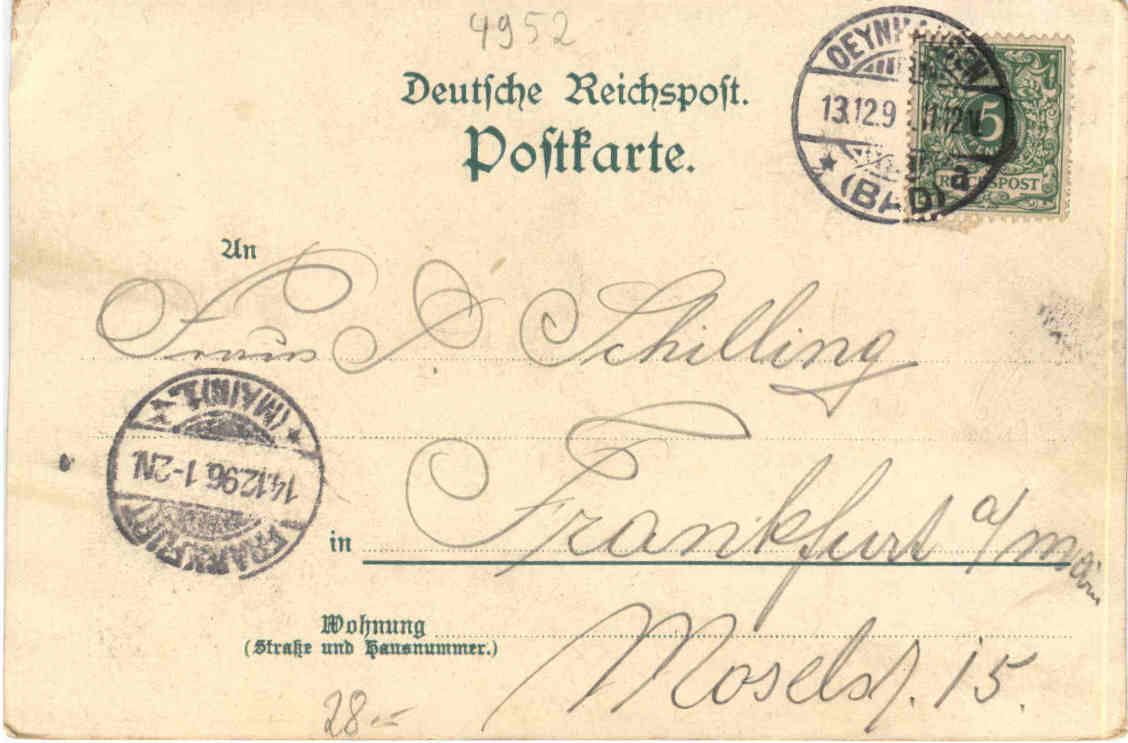 4952
Deutsche Reichspost.
Postkarte.
OEYNHAUSEN
13.12.9 11-12V.
* (BAD) a
5
REICHSPOST
An
Frau Schilling
FRANKFURT
14.12.96. 1-2N.
* (MAIN) 1. *
in Frankfurt a/Main
Wohnung
(Straße und Hausnummer.)
Moselstr. 15.
28.-